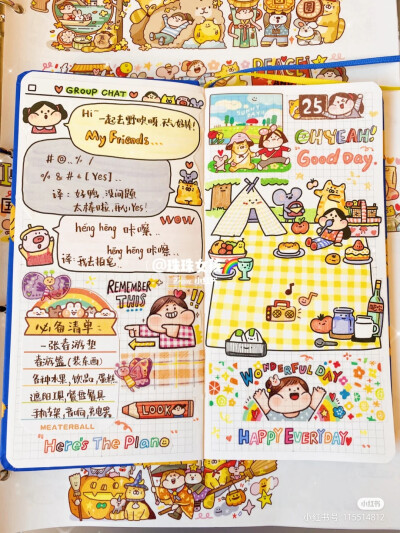 PEACE!
GROUP CHAT
Hi~
一起去野炊呀 天气好好!
My Friends...
# @.. % ^
% & # ÷ 【Yes】..
译: 好鸭 没问题
太棒啦, 开心! Yes!
wow
hēng hēng 咔嚓..
hēng hēng 咔嚓..
译: 我去拍宅
REMEMBER
THIS
必备清单:
一张春游垫
春游篮(装东西)
各种水果, 饮品, 蛋糕
遮阳棚, 餐巾餐具
手机支架, 音响, 充电宝
LOOK
MEATERBALL
"Here's The Plano"
25
OH YEAH!
"Good Day."
WONDERFUL DAY
HAPPY EVERYDAY
小红书
小红书号: 115614812